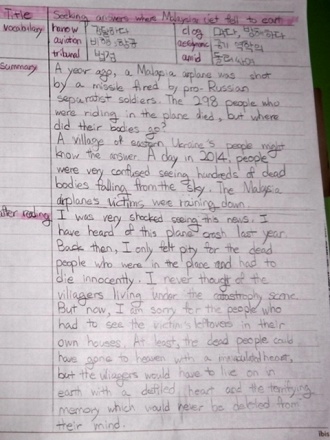 Title Seeking answers where Malaysia jet fell to earth
vocabulary
aviation 비행, 항공
tribunal
amid
summary A year ago, a Malaysia airplane was shot
by a missile fired by pro-Russian
separatist soldiers. The 298 people who
were riding in the plane died, but where
did their bodies go?
A village of eastern Ukraine's people might
know the answer. A day in 2014, people
were very confused seeing hundreds of dead
bodies falling from the sky. The Malaysia
airplane's victims were raining down.
after reading I was very shocked seeing this news. I
have heard of this plane crash last year.
Back then, I only felt pity for the dead
people who were in the plane and had to
die innocently. I never thought of the
villagers living under the catastrophy scene.
But now, I am sorry for the people who
had to see the victim's leftovers in their
own houses. At least, the dead people could
have gone to heaven with a heart,
but the villagers would have to live on in
earth with a heart and the terrifying
memory which would never be deleted from
their mind.